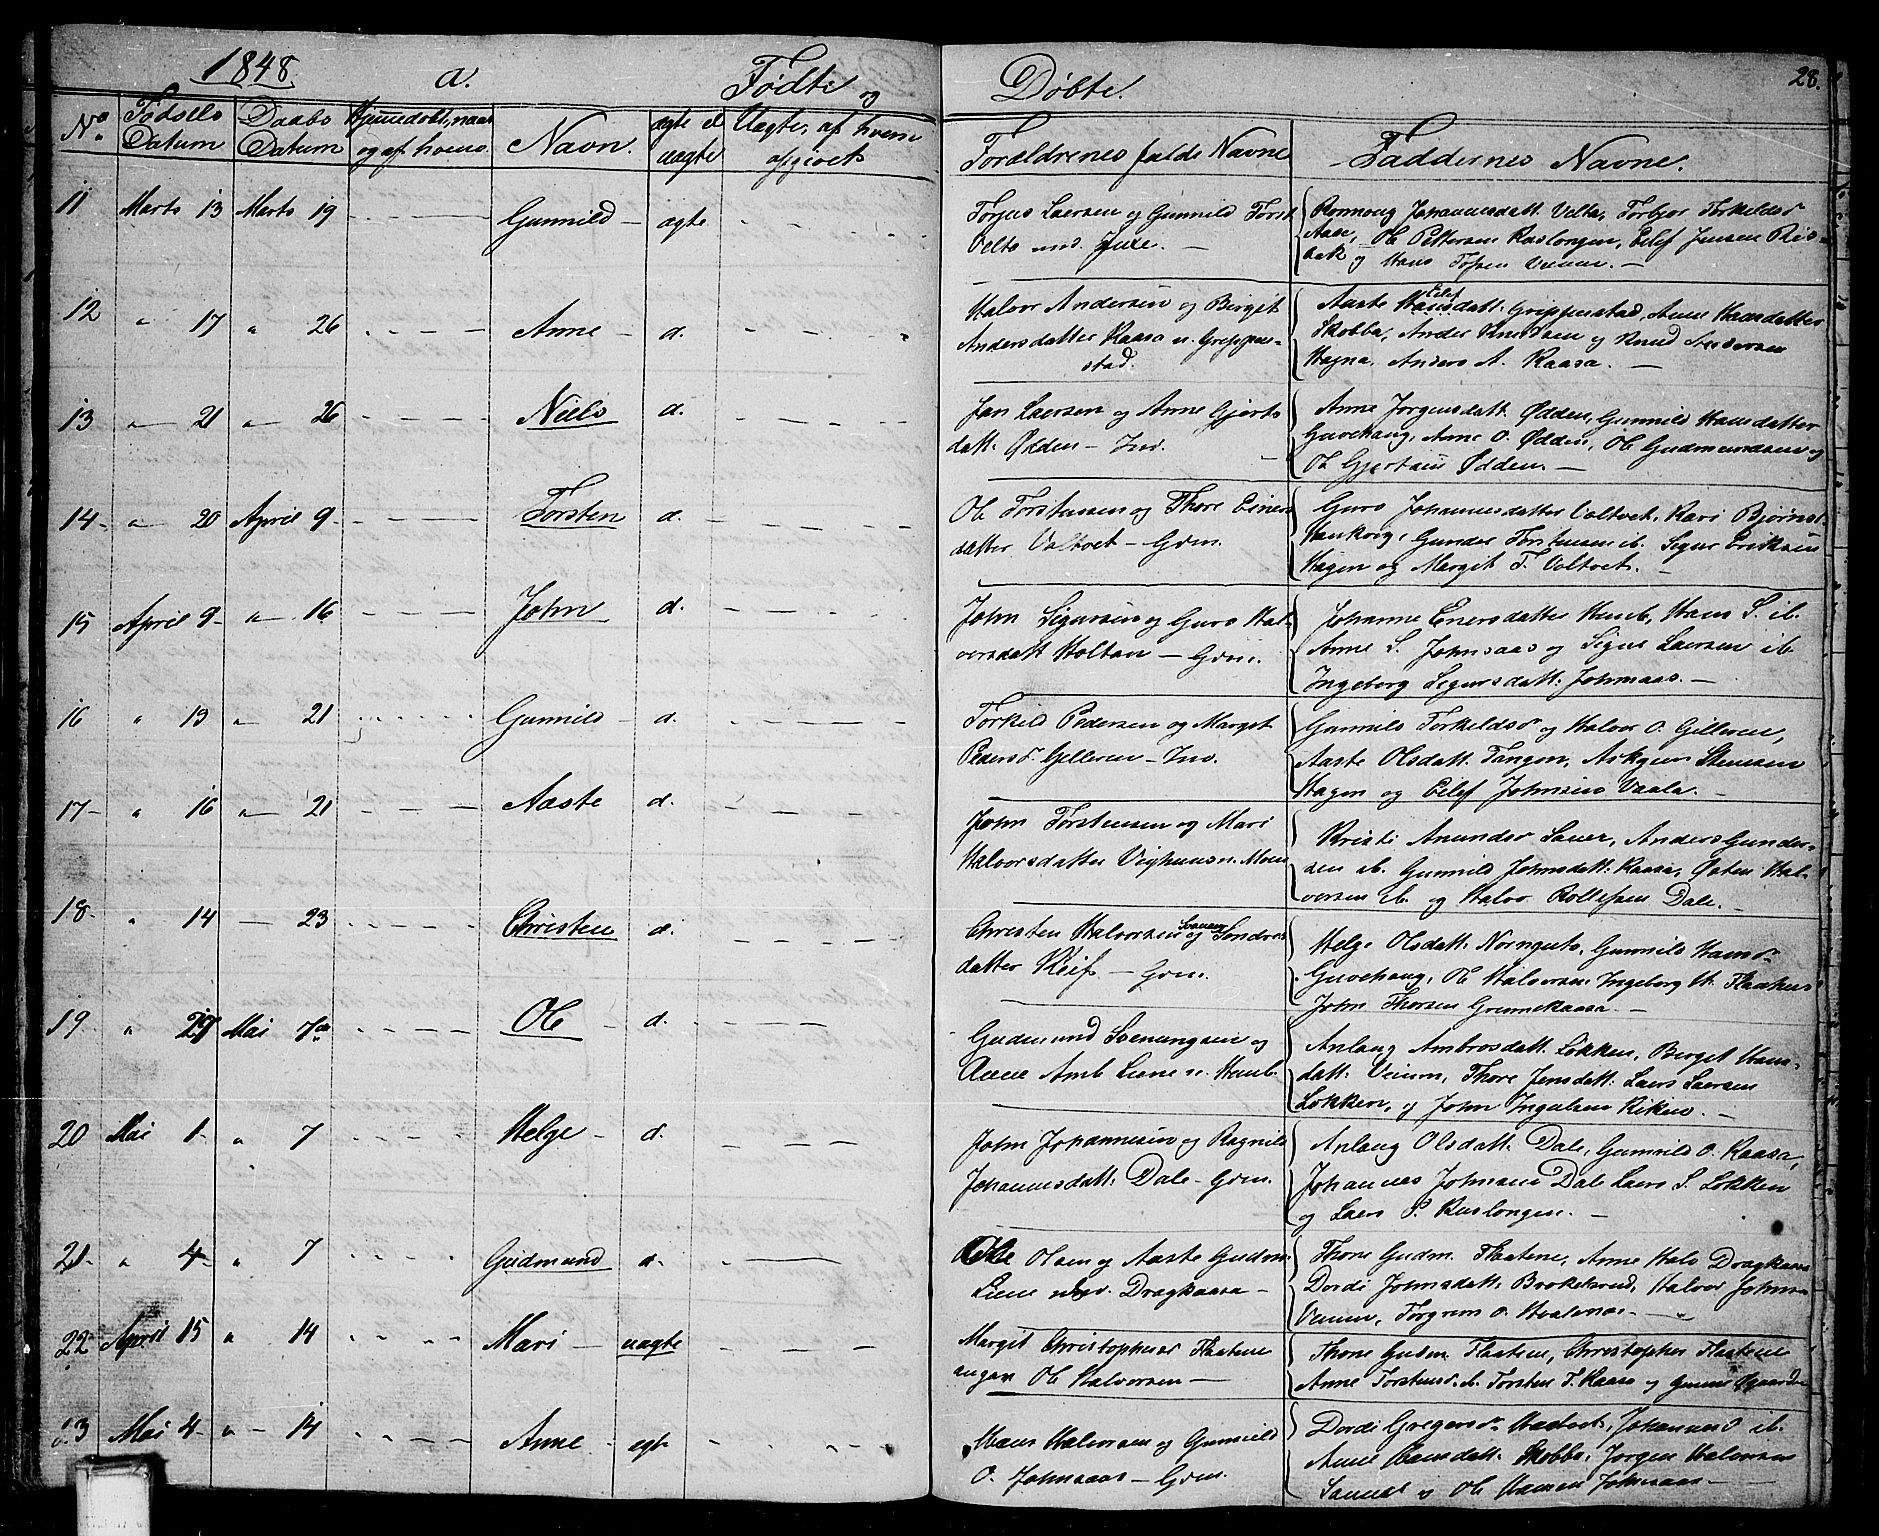 1848. a. Fødte og Døbte. 28.
No. Fødsels Datum Daabs Datum Hjemmedøbt, naar og af hvem. Navn. ægte el uægte Uægte, af hvem opgivet Forældrenes fulde Navne Faddernes Navne.
11 Marts 13 Marts 19 Gunnild ægte
Torjus Laersen og Gunnild Torst.
Johannesdatt. Velta, Torbjør Torkildsd
Aase, Ole Pettersen Ruslongen, Eilef Jensen Ris-
bek og Hans
12 " 17 " 26 Anne d.
Halvor Andersen og Birget
Andersdatter Kaasa n. Grippen-
stad.
Aaste Eilefsdatt. Grippenstad, Anne Hansdatter
Skobba, Ander Knudsen og Knud Andersen
Hagna, Anders A. Kaasa. —
13 " 21 " 26 Niels d.
Jan Laersen og Anne Gjerts
datt. Ødden — Ind.
Anne Jørgensdatt. Ødden, Gunnild Hansdatter
Guvehaug, Anne O. Ødden, Ole Gudmundsen og
Ole Gjertsen Ødden. —
14 " 20 April 9 Torsten d.
Ole Torstensen og Thore Einers
datter Valtvet — Grn.
Guro Johannesdatter Valtvet, Kari Bjørnsd.
Haukvig, Gunder Torstensen ib. Sigur Eriksen
Hagen og Margit T. Valtvet. —
15 April 9 " 16 John d.
John Sigursen og Guro Hal-
vorsdatt Holtan — Grn.
Johanne Enersdatter Hemb, Hans S. ib.
Anne S. Johnsaas og Sigur Laersen ib.
Ingeborg Sigursdatt. Johnsaas. —
16 " 13 " 21 Gunnild d.
Torkild Pedersen og Marget
Pedersd. Gilleren — Ind.
Gunnild Torkeldsd og Halvor O. Gilleren,
Aaste Olsdatt. Tangen, Askjer Stensen
Hagen og Eilef Johnsen Vaala. —
17 " 16 " 21 Aaste d.
John Torstensen og Mari
Halvorsdatter
Kristi Anundsd Sauer, Anders Gunder-
sen ib. Gunnild Johnsdatt. Kaasa, Østen Hal-
vorsen ib. og Halvor Rollefsen Dale. —
18 " 14 " 23 Christen d.
Christen Halvorsen og Sondres
datter Kleif — Grn.
Helge Olsdatt. Nornguto, Gunnild Hansd.
Guvehaug, Ole Halvorsen, Ingeborg H. Flaahus
John Thorsen Grennekaasa. —
19 " 29 Mai 7de Ole d.
Gudmund Svenungsen og
Anne Amb. Liene n. Hemb.
Anlaug Ambrosdatt. Løkken, Berget Hans-
datt. Veium, Thore Jensdatt. Laers Laersen
Løkken, og John Ingulsen Riken. —
20 Mai 1 " 7 Helge d.
John Johannesen og Ragnild
Johannesdatt. Dale — Grn.
Anlaug Olsdatt. Dale, Gunnild O. Kaasa,
Johannes Johnsen Dale Laers S. Løkken
og Laers P. Ruslongen. —
21 " 4 " 7 Gudmund d.
Ole Olsen og Aaste Gudm.
Liene Dragkaasa —
Thone Gudm. Flaatene, Anne Halv Dragkaasa
Dordi Johnsdatt. Halvor Johns
Veium, Torgrim O.
22 April 15 " 14 Mari uægte
Margit Christophersd Flaatene
angav Ole Halvorsen —
Thone Gudm Flaatene, Christopher Flaatene
Anne Torstensd. ib. Torsten T. Kaasa og
23 Mai 4 " 14 Anne egt.
Hans Halvorsen og Gunnild
O. Johnsaas — Grn.
Dordi Gregersd. Hastvet, Johannes O ib.
Anne Hansdatt. Skobba, Jørgen Halvorsen
og Ole Hansen Johnsaas —